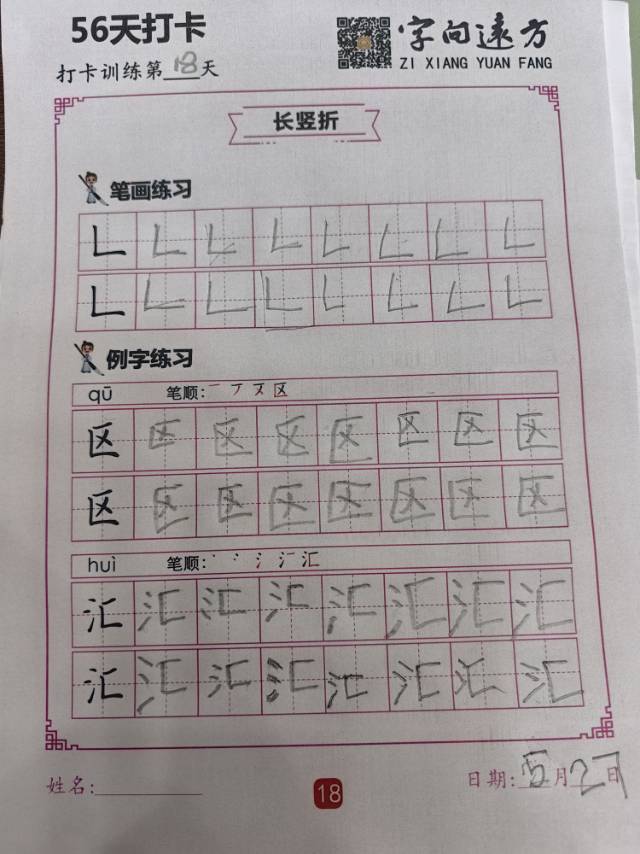 56天打卡
字向远方
ZI XIANG YUAN FANG
打卡训练第18天
长竖折
笔画练习
𠃊 𠃊 𠃊 𠃊 𠃊 𠃊 𠃊 𠃊
𠃊 𠃊 𠃊 𠃊 𠃊 𠃊 𠃊 𠃊
例字练习
qū 笔顺: 区
区 区 区 区 区 区 区 区
区 区 区 区 区 区 区 区
huì 笔顺: 汇
汇 汇 汇 汇 汇 汇 汇 汇
汇 汇 汇 汇 汇 汇 汇 汇
姓名:
18
日期: 5月27日